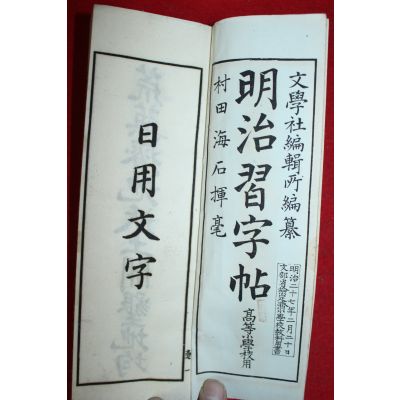 文學社編輯所編纂
明治習字帖
高等小學校用
村田海石揮毫
明治二十七年二月二十日
文部省檢定濟小學校教科用書
日用文字